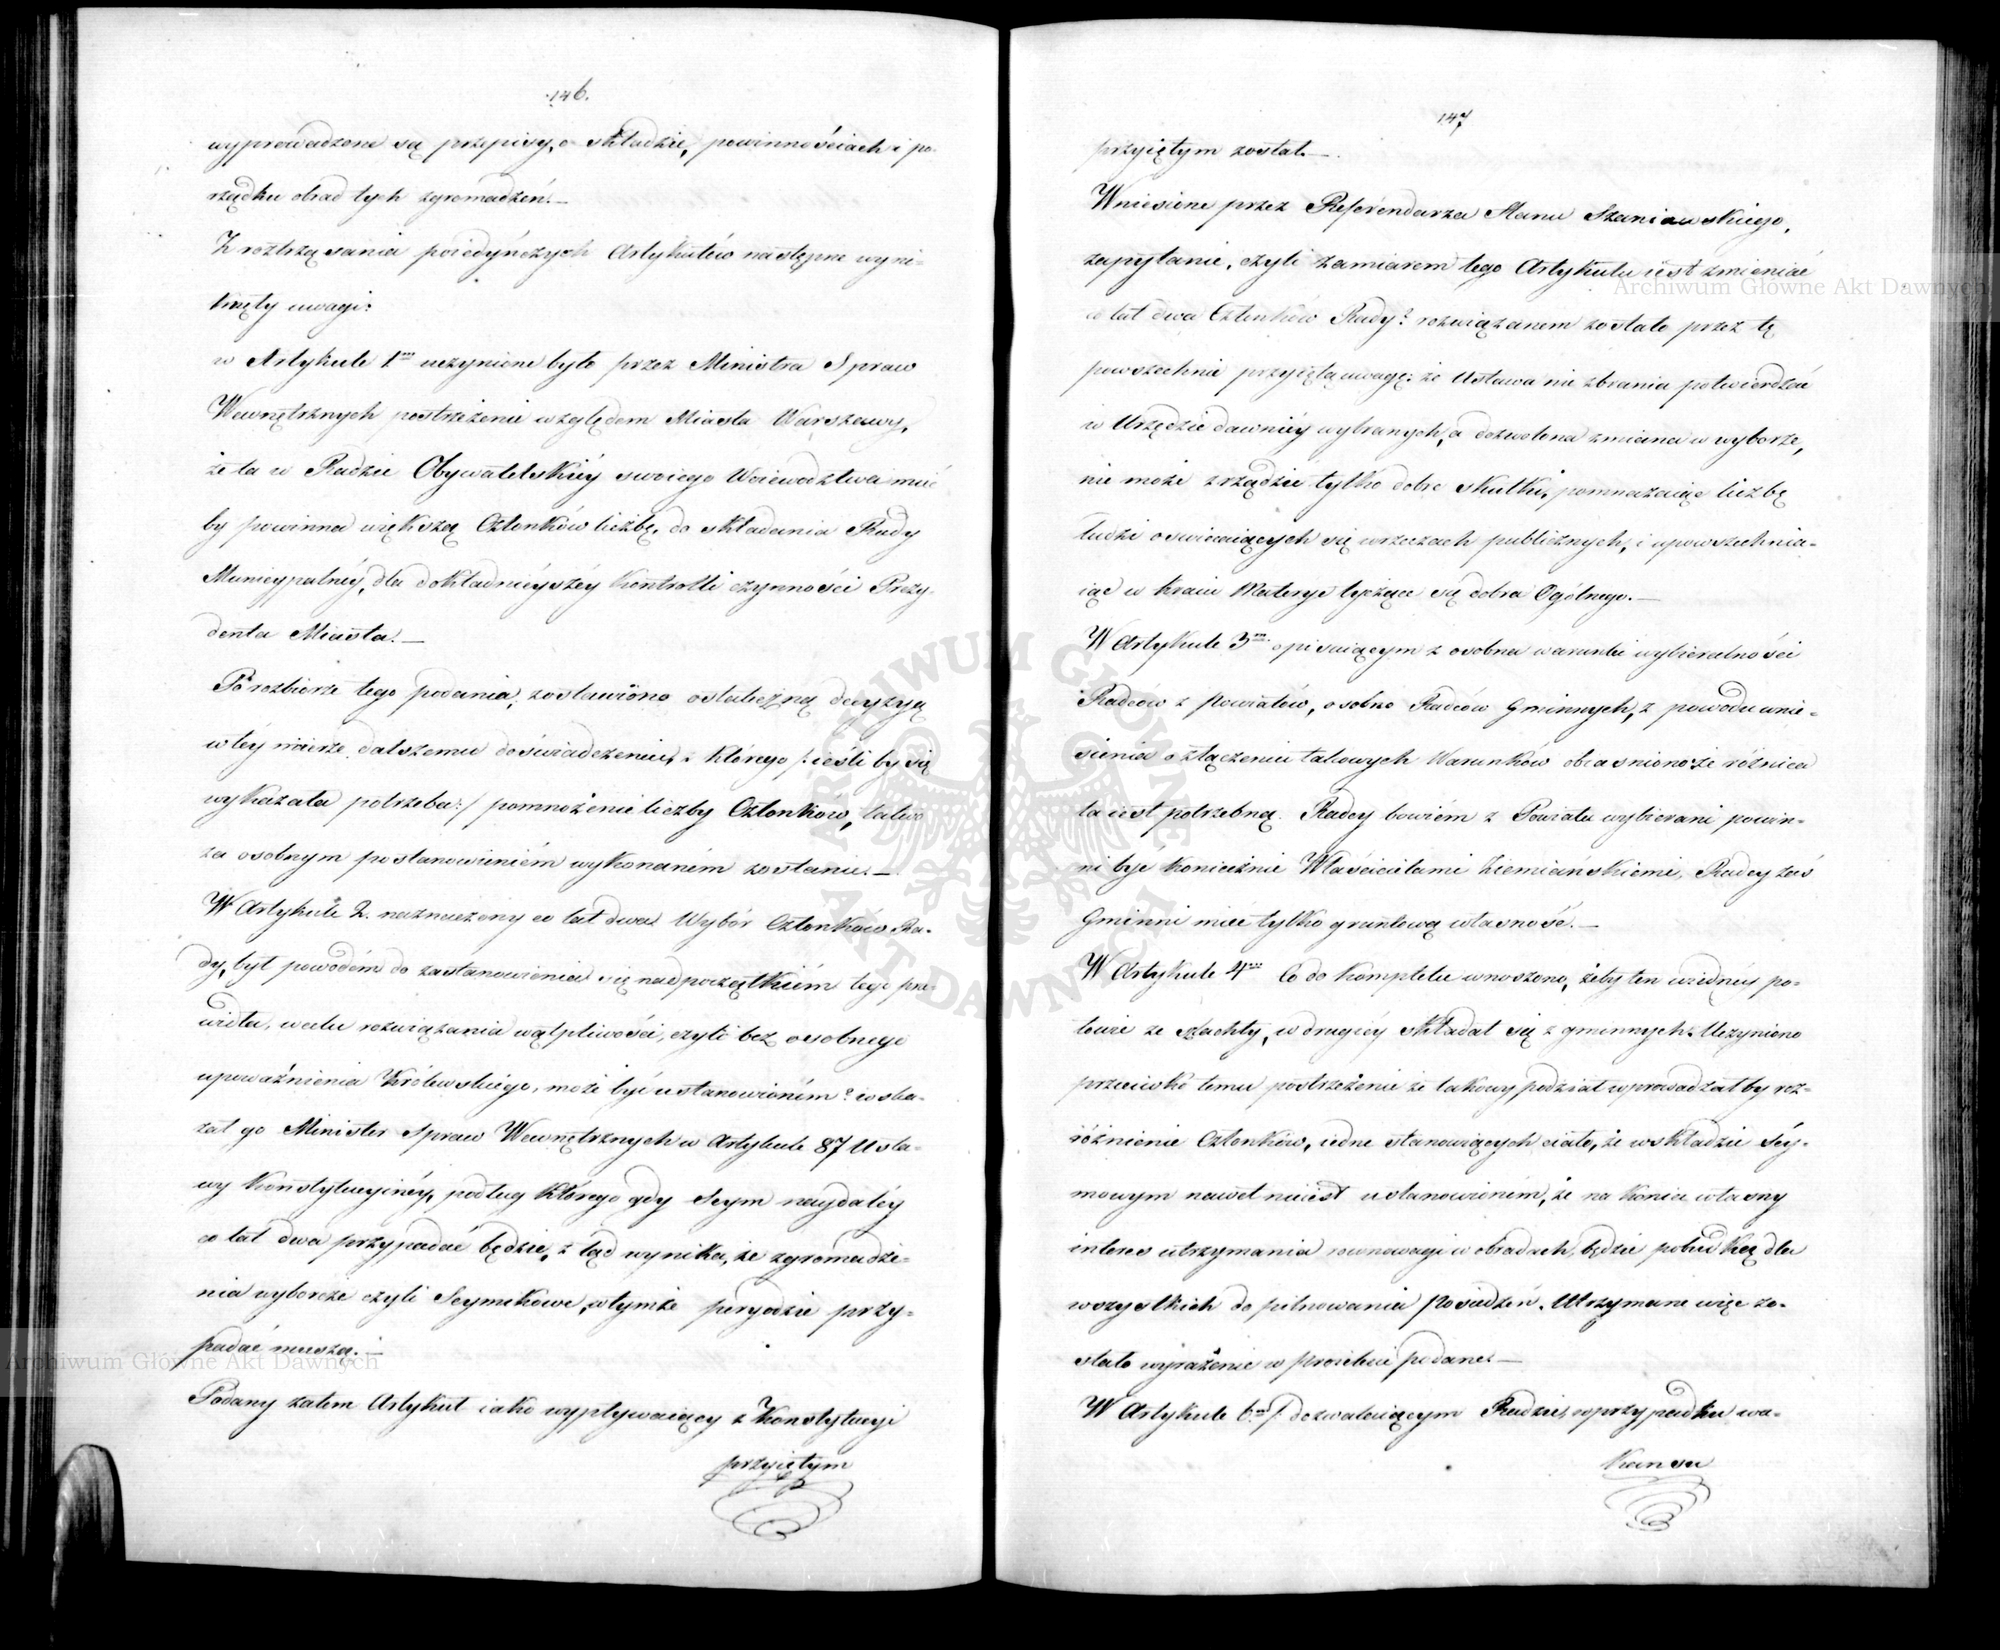 146.
wyprowadzone są przepisy, o składzie, powinnościach i po-
rządku obrad tych zgromadzeń.—
Z roztrząsania poiedyńczych Artykułów następne wyni-
knęły uwagi:
w Artykule 1m uczynione było przez Ministra Spraw
Wewnętrznych postrzeżenie względem Miasta Warszawy,
że ta w Radzie Obywatelskiéy swoiego Woiewództwa mieć
by powinna większą Członków liczbę, do składania Rady
Municypalnéy, dla dokładnieyszéy Kontrolli czynności Prezy-
denta Miasta.—
Po rozbiorze tego podania, zostawiono ostateczną decyzyą
w téy mierze dalszemu doświadczeniu, z którego /: ieśli by się
wykazała potrzeba :/ pomnożenie liczby Członków, łatwo
za osobnym postanowieniém wykonaném zostanie.—
W Artykule 2. naznaczony co lat dwa Wybór Członków Ra-
dy, był powodém do zastanowienia się nad początkiém tego pra-
widła, w celu rozwiązania wątpliwości, czyli bez osobnego
upoważnienia Królewskiego, może być ustanowioném? wska-
zał go Minister Spraw Wewnętrznych w Artykule 87 Usta-
wy Konstytucyinéy, podług którego gdy Seym naydaléy
co lat dwa przypadać będzie, z tąd wynika, że zgromadze-
nia wyborcze czyli Seymikowe, w tymże peryodzie przy-
padać muszą.—
Podany zatem Artykuł iako wypływaiący z Konstytucyi
przyiętym
147
przyiętym został.—
Wniesione przez Referendarza Stanu Szaniawskiego,
zapytanie, czyli zamiarem tego Artykułu iest zmieniać
co lat dwa Członków Rady? rozwiązanem zostało przez tę
powszechnie przyiętą uwagę: że Ustawa nie zbrania potwierdzać
w Urzędzie dawniéy wybranych, a dozwolona zmiana w wyborze,
nie może zrządzić tylko dobre skutki, pomnażaiąc liczbę
ludzi oswiecaiących się w rzeczach publicznych, i upowszechnia-
iąc w kraiu Materye tyczące się dobra Ogólnego.—
W Artykule 3m opisuiącym z osobna warunki wybieralności
Radców z Powiatów, osobno Radców Gminnych, z powodu wnie-
sienia o złączeniu takowych Warunków obiasniono że różnica
ta iest potrzebną. Radcy bowiém z Powiatu wybierani powin-
ni być koniecznie Właścicielami Ziemiańskiemi, Radcy zaś
Gminni mieć tylko gruntową własność.—
W Artykule 4m Co do kompletu wnoszono, żeby ten w iednéy po-
łowie ze szlachty, w drugiéy składał się z gminnych. Uczyniono
przeciwko temu postrzeżenie że takowy podział wprowadzałby roz-
różnienie Członków, iedne stanowiących ciało, że w składzie Séy-
mowym nawet nie iest ustanowioném, że na koniec własny
interes utrzymania rownowagi w obradach, będzie pobudką dla
wszystkich do pilnowania Posiedzeń. Utrzymane więc zo-
stało wyrażenie w proiekcie podane.—
W Artykule 6m dozwalaiącym Radzie, w przypadku wa-
kansu
ARCHIWUM GŁÓWNE AKT DAWNYCH
Archiwum Główne Akt Dawnych
Archiwum Główne Akt Dawnych